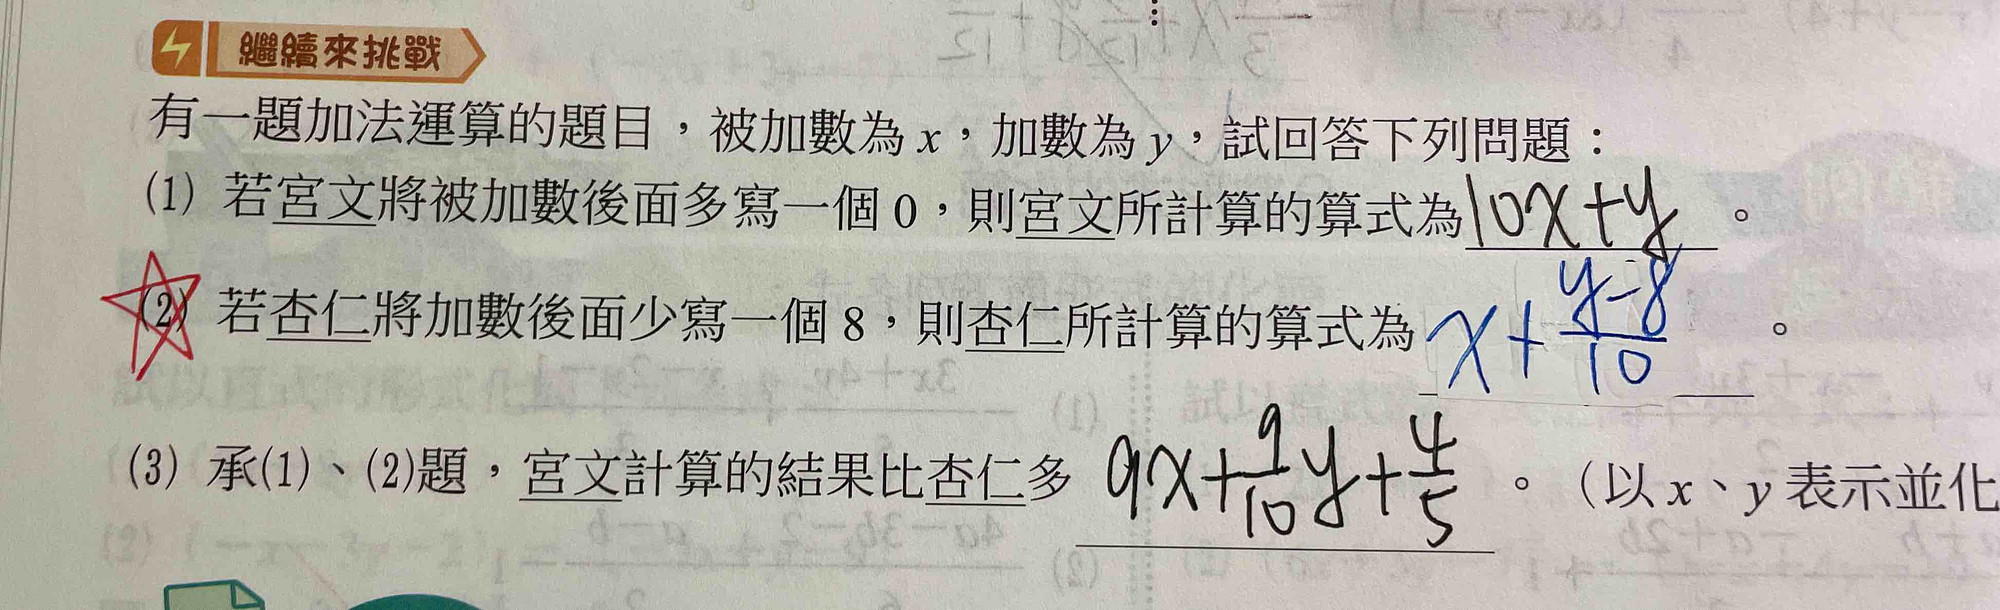 繼續來挑戰
有一題加法運算的題目，被加數為 x，加數為 y，試回答下列問題：
(1) 若宮文將被加數後面多寫一個 0，則宮文所計算的算式為 10x+y 。
(2) 若杏仁將加數後面少寫一個 8，則杏仁所計算的算式為 x+\frac{y-8}{10} 。
(3) 承(1)、(2)題，宮文計算的結果比杏仁多 9x+\frac{9}{10}y+\frac{4}{5} 。（以 x、y 表示並化